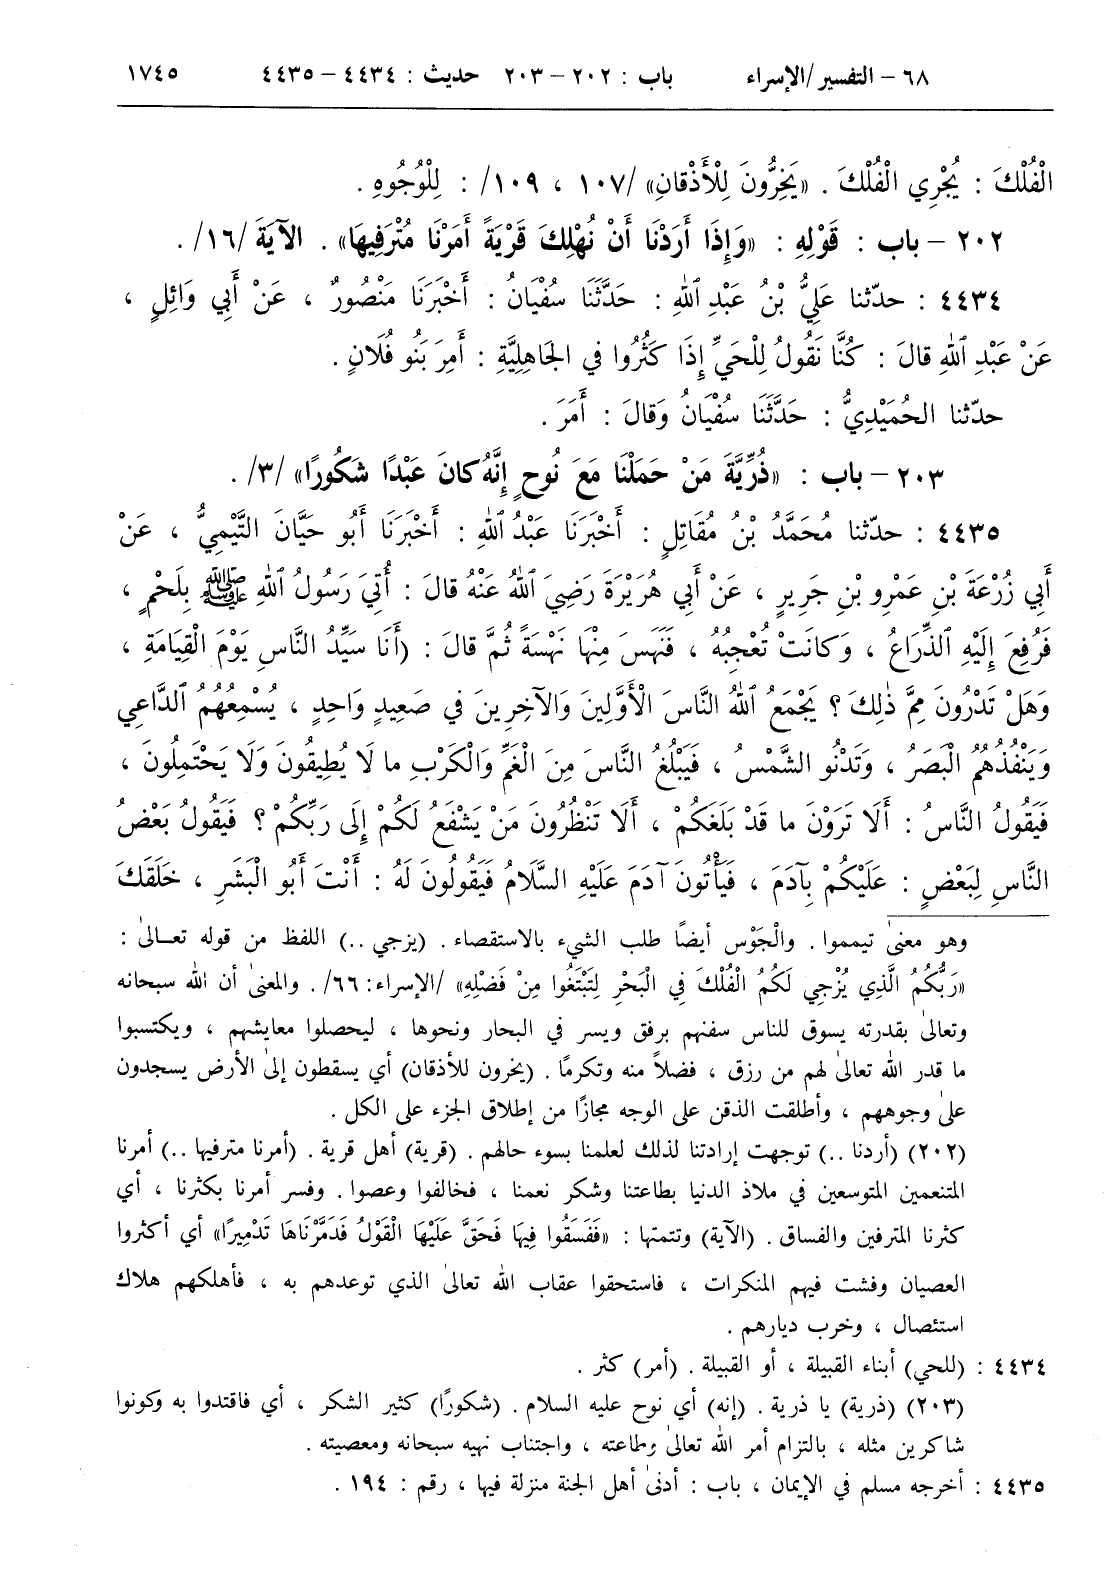 ٦٨ – التفسير/الإسراء باب : ٢٠٢ – ٢٠٣ حديث : ٤٤٣٤ – ٤٤٣٥ ١٧٤٥
الْفُلْكَ : يُجْرِي الْفُلْكَ . «يَخِرُّونَ لِلْأَذْقانِ» /١٠٧ ، ١٠٩/ : لِلْوُجُوهِ .
٢٠٢ – باب : قَوْلِهِ : «وَإِذَا أَرَدْنَا أَنْ نُهْلِكَ قَرْيَةً أَمَرْنَا مُتْرَفِيهَا» . الآيَةَ /١٦/ .
٤٤٣٤ : حدّثنا عَلِيُّ بْنُ عَبْدِ اللهِ : حَدَّثَنَا سُفْيَانُ : أَخْبَرَنَا مَنْصُورٌ ، عَنْ أَبِي وَائِلٍ ،
عَنْ عَبْدِ اللهِ قالَ : كُنَّا نَقُولُ لِلْحَيِّ إِذَا كَثُرُوا في الجَاهِلِيَّةِ : أَمِرَ بَنُو فُلَانٍ .
حدّثنا الحُمَيْدِيُّ : حَدَّثَنَا سُفْيَانُ وَقالَ : أَمَرَ .
٢٠٣ – باب : «ذُرِّيَّةَ مَنْ حَمَلْنَا مَعَ نُوحٍ إِنَّهُ كانَ عَبْدًا شَكُورًا» /٣/ .
٤٤٣٥ : حدّثنا مُحَمَّدُ بْنُ مُقَاتِلٍ : أَخْبَرَنَا عَبْدُ اللهِ : أَخْبَرَنَا أَبُو حَيَّانَ التَّيْمِيُّ ، عَنْ
أَبِي زُرْعَةَ بْنِ عَمْرِو بْنِ جَرِيرٍ ، عَنْ أَبِي هُرَيْرَةَ رَضِيَ اللهُ عَنْهُ قالَ : أُتِيَ رَسُولُ اللهِ ﷺ بِلَحْمٍ ،
فَرُفِعَ إِلَيْهِ الذِّرَاعُ ، وَكانَتْ تُعْجِبُهُ ، فَنَهَسَ مِنْهَا نَهْسَةً ثُمَّ قالَ : (أَنَا سَيِّدُ النَّاسِ يَوْمَ الْقِيَامَةِ ،
وَهَلْ تَدْرُونَ مِمَّ ذٰلِكَ ؟ يَجْمَعُ اللهُ النَّاسَ الْأَوَّلِينَ وَالآخِرِينَ في صَعِيدٍ وَاحِدٍ ، يُسْمِعُهُمُ الدَّاعِي
وَيَنْفُذُهُمُ الْبَصَرُ ، وَتَدْنُو الشَّمْسُ ، فَيَبْلُغُ النَّاسَ مِنَ الْغَمِّ وَالْكَرْبِ ما لَا يُطِيقُونَ وَلَا يَحْتَمِلُونَ ،
فَيَقُولُ النَّاسُ : أَلَا تَرَوْنَ ما قَدْ بَلَغَكُمْ ، أَلَا تَنْظُرُونَ مَنْ يَشْفَعُ لَكُمْ إِلَى رَبِّكُمْ ؟ فَيَقُولُ بَعْضُ
النَّاسِ لِبَعْضٍ : عَلَيْكُمْ بِآدَمَ ، فَيَأْتُونَ آدَمَ عَلَيْهِ السَّلَامُ فَيَقُولُونَ لَهُ : أَنْتَ أَبُو الْبَشَرِ ، خَلَقَكَ
وهو معنىٰ تيمموا . والْجَوْس أيضاً طلب الشيء بالاستقصاء . (يزجي ..) اللفظ من قوله تعالىٰ :
«رَبُّكُمُ الَّذِي يُزْجِي لَكُمُ الْفُلْكَ فِي الْبَحْرِ لِتَبْتَغُوا مِنْ فَضْلِهِ» /الإسراء: ٦٦/ . والمعنىٰ أن الله سبحانه
وتعالىٰ بقدرته يسوق للناس سفنهم برفق ويسر في البحار ونحوها ، ليحصلوا معايشهم ، ويكتسبوا
ما قدر الله تعالىٰ لهم من رزق ، فضلاً منه وتكرمًا . (يخرون للأذقان) أي يسقطون إلىٰ الأرض يسجدون
علىٰ وجوههم ، وأطلقت الذقن على الوجه مجازًا من إطلاق الجزء على الكل .
(٢٠٢) (أردنا ..) توجهت إرادتنا لذلك لعلمنا بسوء حالهم . (قرية) أهل قرية . (أمرنا مترفيها ..) أمرنا
المتنعمين المتوسعين في ملاذ الدنيا بطاعتنا وشكر نعمنا ، فخالفوا وعصوا . وفسر أمرنا بكثرنا ، أي
كثرنا المترفين والفساق . (الآية) وتتمتها : «فَفَسَقُوا فِيهَا فَحَقَّ عَلَيْهَا الْقَوْلُ فَدَمَّرْنَاهَا تَدْمِيرًا» أي أكثروا
العصيان وفشت فيهم المنكرات ، فاستحقوا عقاب الله تعالىٰ الذي توعدهم به ، فأهلكهم هلاك
استئصال ، وخرب ديارهم .
٤٤٣٤ : (للحي) أبناء القبيلة ، أو القبيلة . (أمر) كثر .
(٢٠٣) (ذرية) يا ذرية . (إنه) أي نوح عليه السلام . (شكورًا) كثير الشكر ، أي فاقتدوا به وكونوا
شاكرين مثله ، بالتزام أمر الله تعالىٰ وطاعته ، واجتناب نهيه سبحانه ومعصيته .
٤٤٣٥ : أخرجه مسلم في الإيمان ، باب : أدنىٰ أهل الجنة منزلة فيها ، رقم : ١٩٤ .